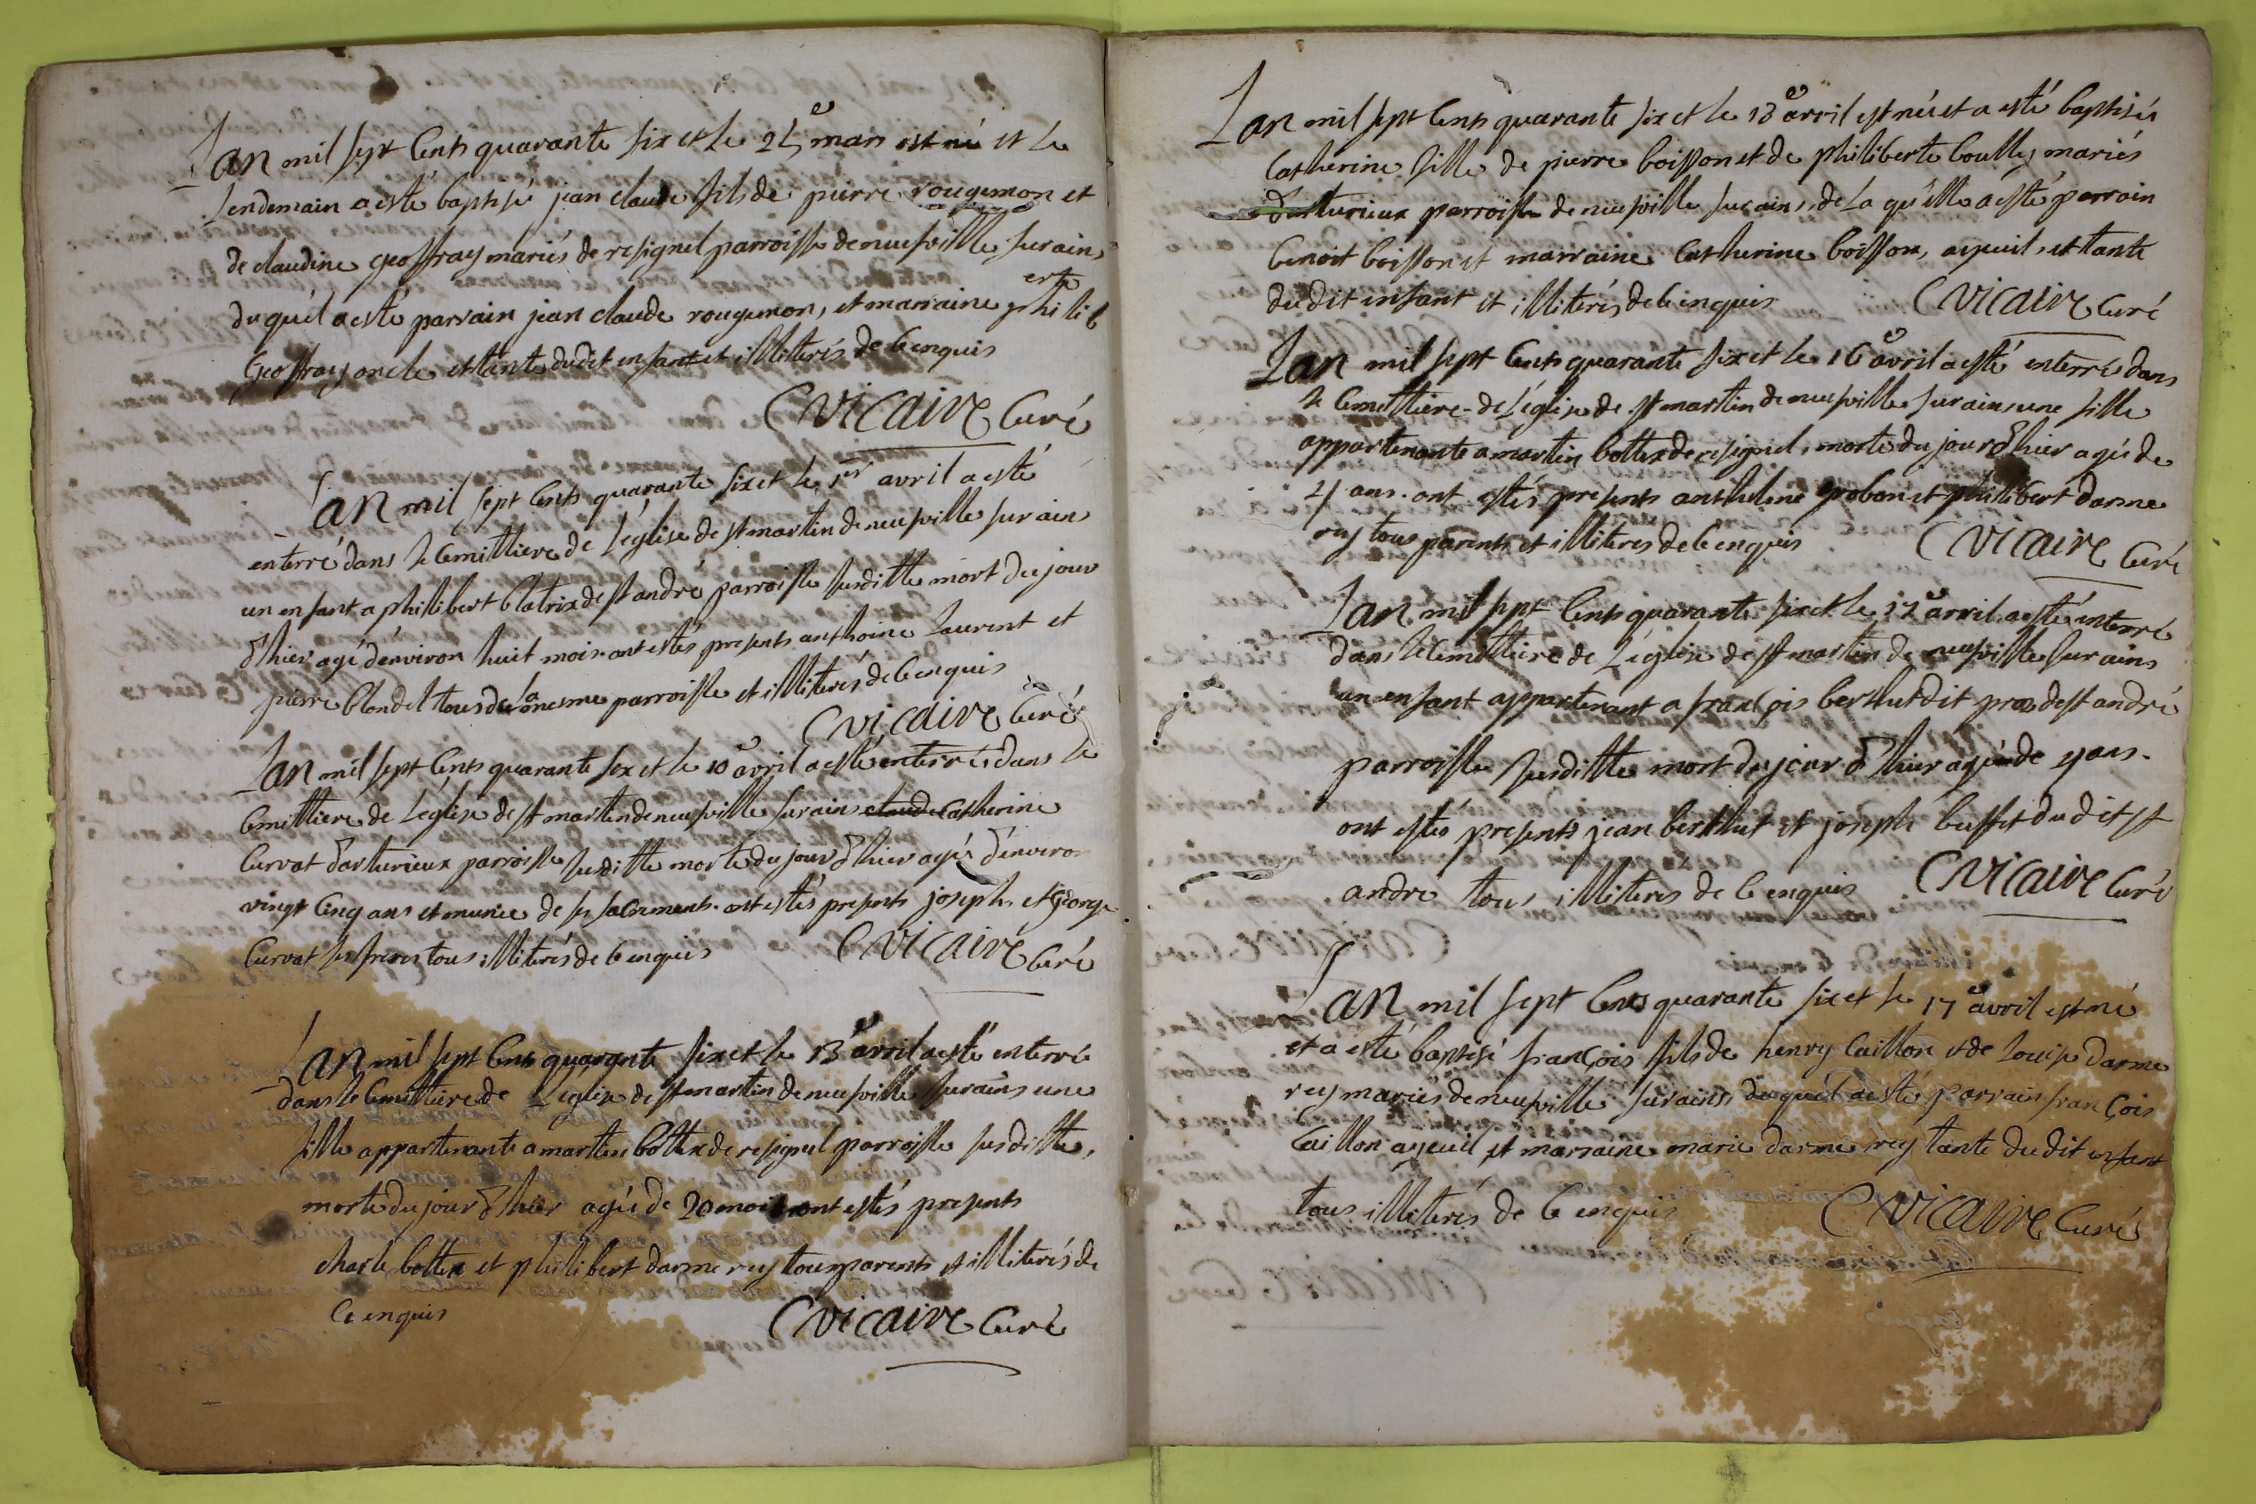 Lan mil sept Cents quarante six et le 25e mars est né et le
lendemain a esté baptisé jean claude fils de pierre rougemon et
de claudine geoffray mariés de resignel parroisse de neufville surains
duquél a esté parrain jean claude rougemon, et marraine philib
erte
geoffray oncle et tante dudit enfant et illiterés de ce enquis
C vicaire Curé
Lan mil sept Cents quarante six et le 1er avril a esté
enterré dans le Cemittiere de l'église de st martin de neufville surains
un enfant a philibert blatrix de st andré parroisse susditte mort du jour
d'hier agé d'environ huit mois. ont estés presents anthoine laurent et
pierre blondel tous de la mesme parroisse et illiterés de ce enquis
C vicaire Curé
Lan mil sept Cents quarante six et le 10e avril a esté enterrée dans le
Cemittiere de l'église de st martin de neufville surains claude Catherine
Curvat d'arturieux parroisse susditte morte du jour d'hier agée d'environ
vingt Cinq ans et munie de ses sacrements. ont estés presents joseph et George
Curvat ses freres tous illiterés de ce enquis
C vicaire Curé
Lan mil sept Cents quarante six et le 13e avril a esté enterré
dans le Cemittiere de L'eglise de st martin de neufville surains une
fille appartenante a martin bottex de resignel parroisse susditte,
morte du jour d'hier agée de 20 mois ont estés presents
charle bottex et philibert darmerey tous parents et illiterés de
Ce enquis
C vicaire Curé
Lan mil sept Cents quarante six et le 13e avril est née et a esté baptisée
Catherine fille de pierre boisson et de philiberte boulley mariés
d'arturieux parroisse de neufville surains, de la quélle a esté parrain
benoit boisson et marraine Catherine boisson, ayeuil, et tante
dudit enfant et illiterés de ce enquis
C vicaire Curé
Lan mil sept Cents quarante six et le 16e avril a esté enterrée dans
le Cemittiere de L'église de st martin de neufville surains une fille
appartenante a martin bottex de resignel, morte du jour d'hier agée de
4 ans. ont estés presents anthelme grobon et philibert darme
rey tous parents et illiterés de ce enquis
C vicaire Curé
Lan mil sept Cents quarante six et le 17e avril a esté enterré
dans le Cemittiere de L'église de st martin de neufville surains
un enfant appartenant a françois berthut dit pros de st andré
parroisse susditte mort du jour d'hier agé de 9 ans.
ont estés presents jean berthut et joseph buffet dudit st
andre tous illiterés de ce enquis
C vicaire Curé
Lan mil sept Cents quarante six et le 17e avril est né
et a esté baptisé françois fils de henry Caillon et de louise darme
rey mariés de neufville surains duquél a esté parrain françois
Caillon ayeuil et marraine marie darmerey tante dudit enfant
tous illiterés de ce enquis
C vicaire Curé